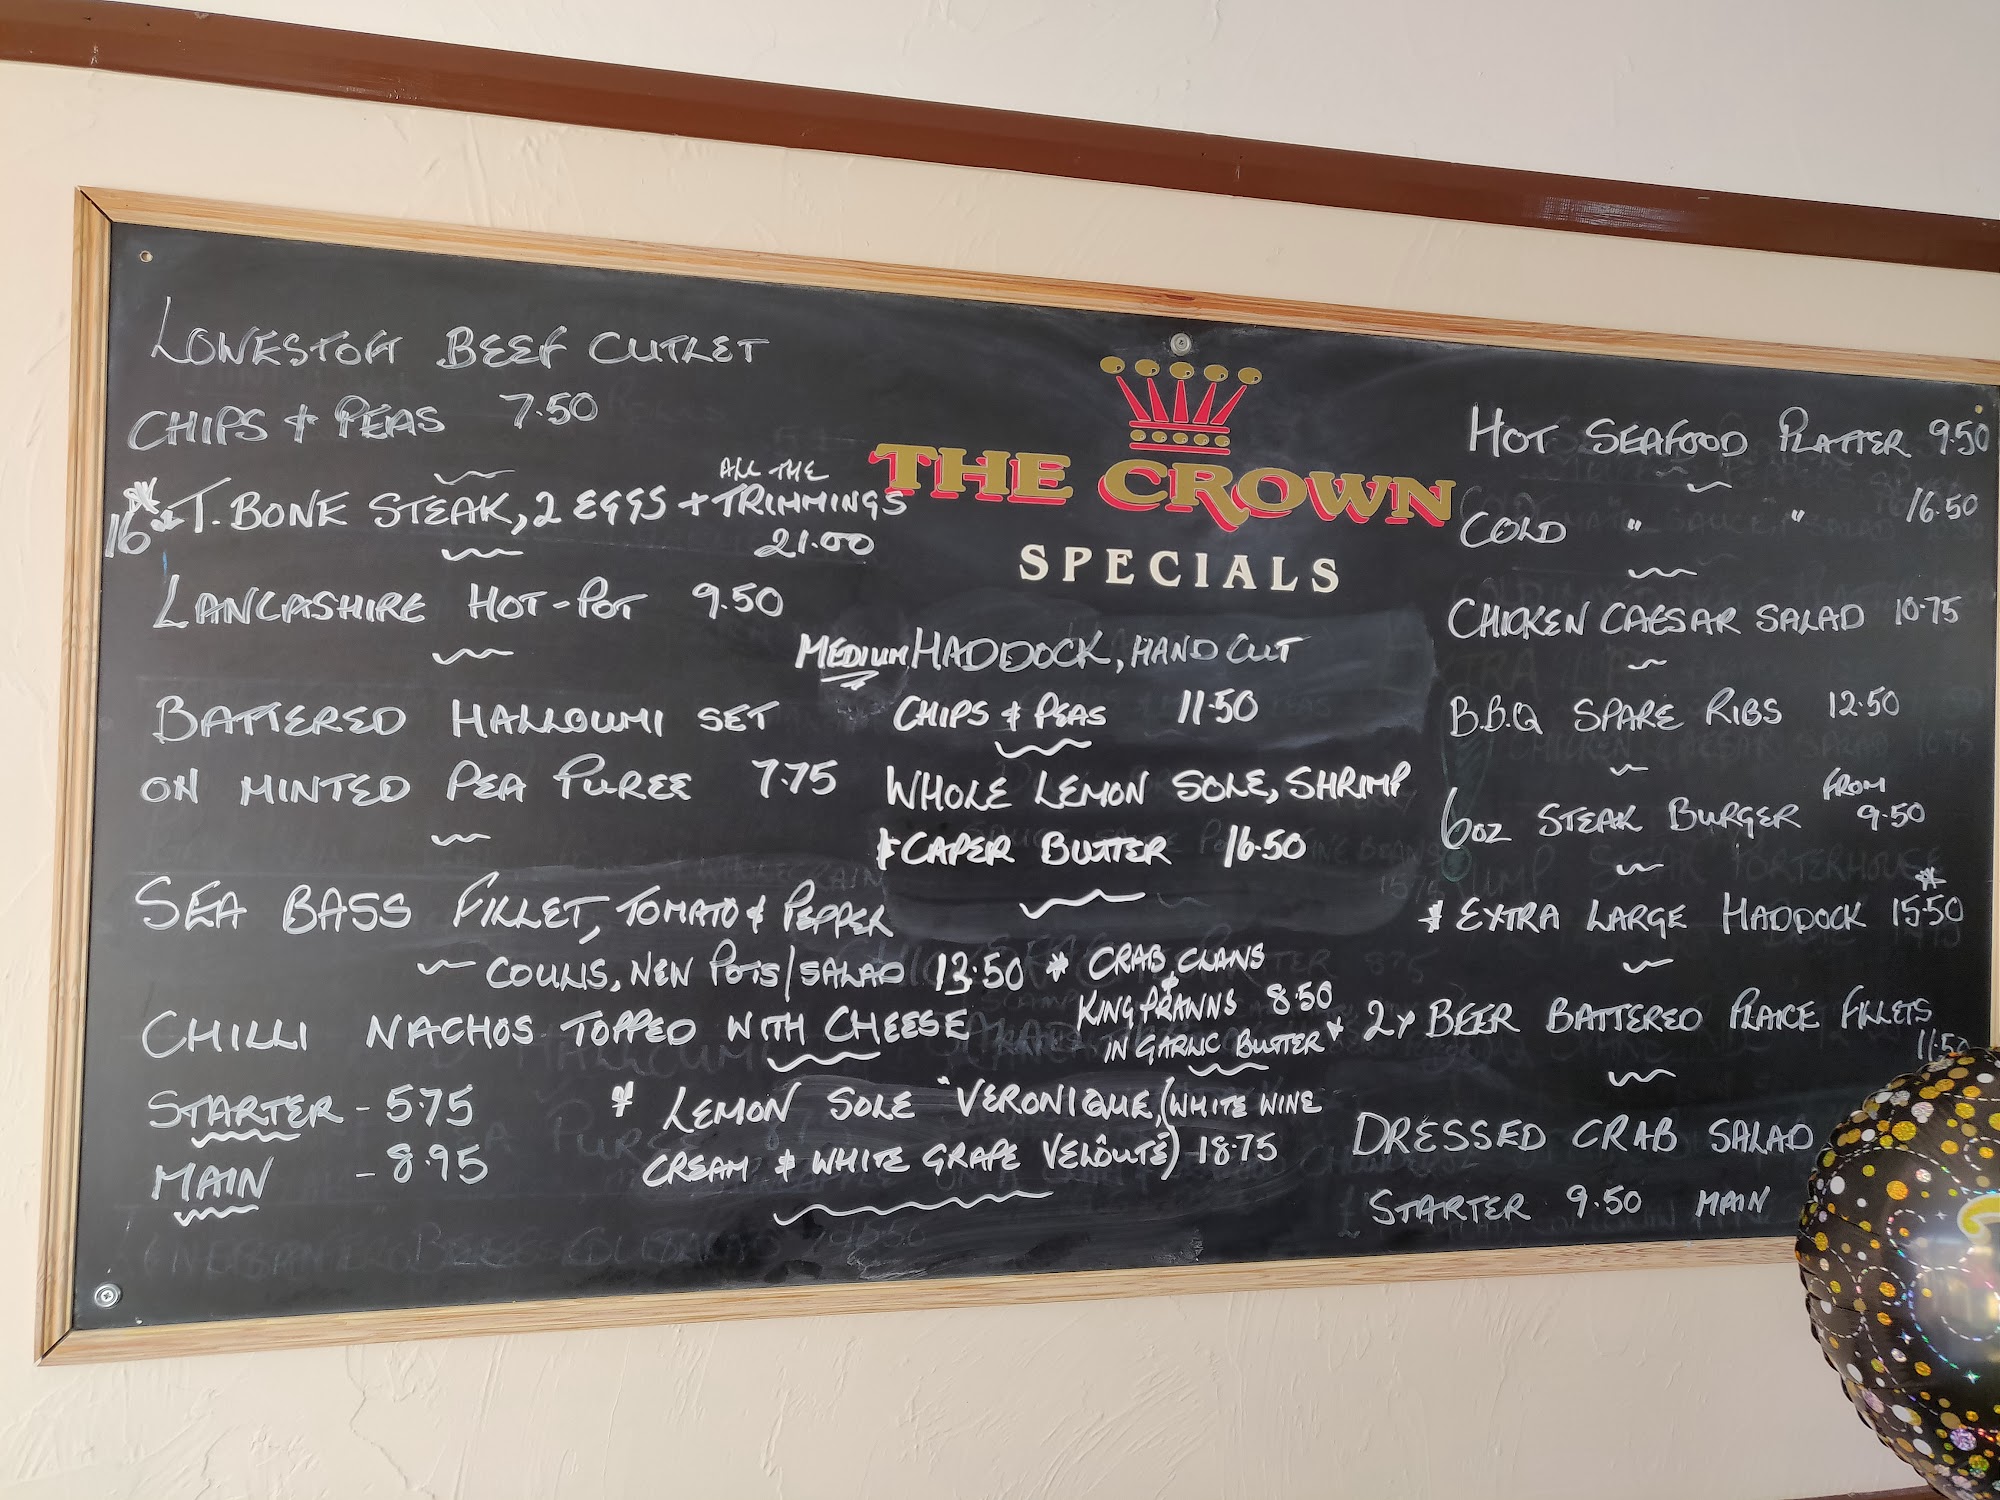 LOWESTOFT BEEF CUTLET
CHIPS & PEAS 7.50
ALL THE
* 16oz T.BONE STEAK, 2 EGGS + TRIMMINGS
21.00
LANCASHIRE HOT-POT 9.50
BATTERED HALLOUMI SET
ON MINTED PEA PUREE 7.75
SEA BASS FILLET, TOMATO & PEPPER
COULIS, NEW POTS/SALAD 13.50
CHILLI NACHOS TOPPED WITH CHEESE
STARTER - 5.75
MAIN - 8.95
THE CROWN
SPECIALS
MEDIUM HADDOCK, HAND CUT
CHIPS & PEAS 11.50
WHOLE LEMON SOLE, SHRIMP
& CAPER BUTTER 16.50
* CRAB CLAWS
& KING PRAWNS 8.50
IN GARLIC BUTTER *
* LEMON SOLE "VERONIQUE, (WHITE WINE
CREAM & WHITE GRAPE VELÔUTÉ) 18.75
HOT SEAFOOD PLATTER 9.50
COLD " " 16.50
CHICKEN CAESAR SALAD 10.75
B.B.Q SPARE RIBS 12.50
6oz STEAK BURGER FROM 9.50
* EXTRA LARGE HADDOCK 15.50 *
2x BEER BATTERED PLAICE FILLETS
11.50
DRESSED CRAB SALAD
STARTER 9.50 MAIN